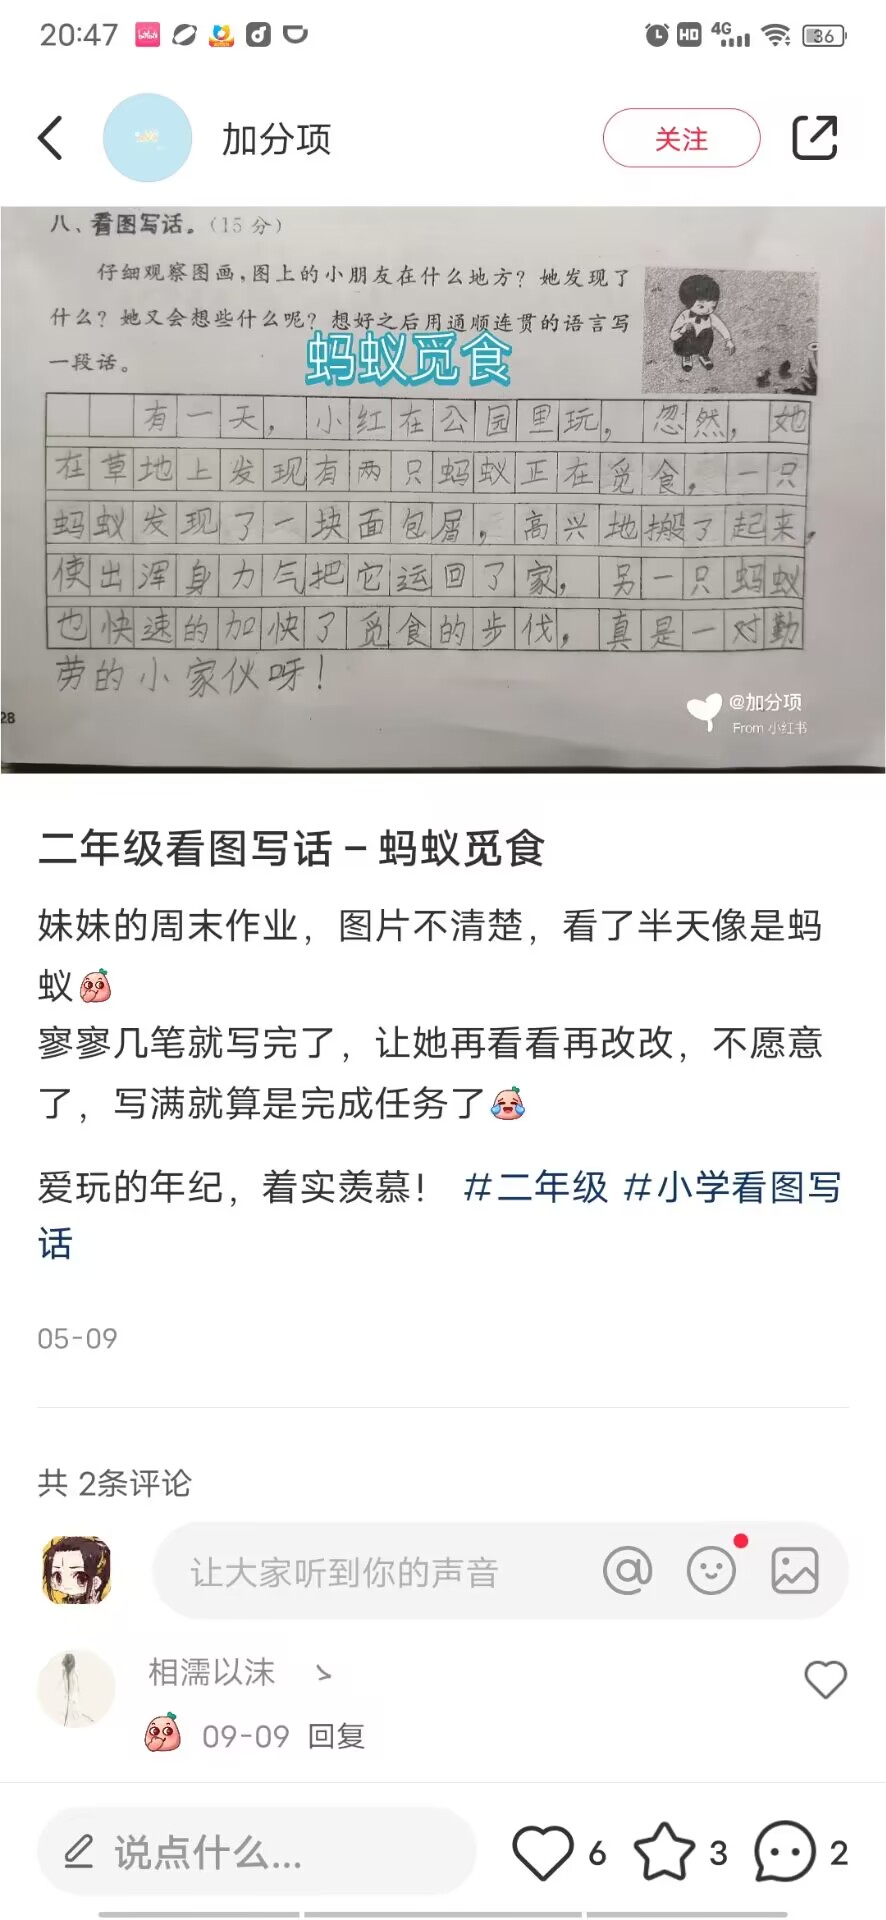 20:47
HD 4G 36
加分项
关注
八、看图写话。(15分)
仔细观察图画,图上的小朋友在什么地方?她发现了
什么?她又会想些什么呢?想好之后用通顺连贯的语言写
一段话。
蚂蚁觅食
有一天,小红在公园里玩,忽然,她
在草地上发现有两只蚂蚁正在觅食,一只
蚂蚁发现了一块面包屑,高兴地搬了起来,
使出浑身力气把它运回了家,另一只蚂蚁
也快速的加快了觅食的步伐,真是一对勤
劳的小家伙呀!
28
@加分项
From 小红书
二年级看图写话–蚂蚁觅食
妹妹的周末作业，图片不清楚，看了半天像是蚂
蚁
寥寥几笔就写完了，让她再看看再改改，不愿意
了，写满就算是完成任务了
爱玩的年纪，着实羡慕！ #二年级 #小学看图写
话
05-09
共 2条评论
让大家听到你的声音
相濡以沫
09-09 回复
说点什么...
6
3
2